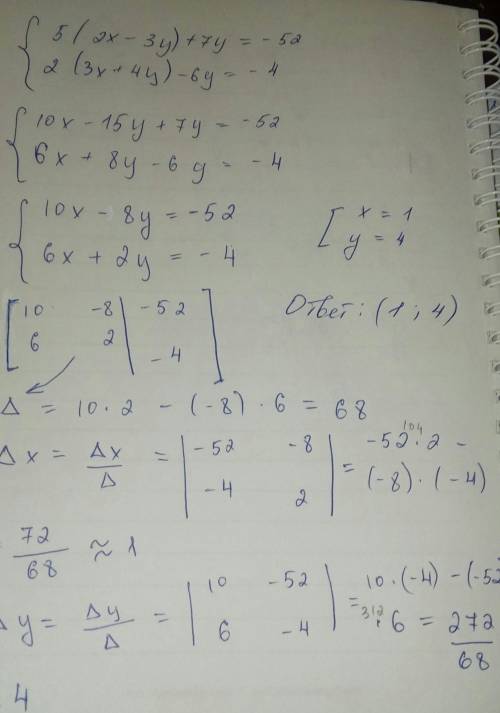 5(2x-3y)+7y=-52
2(3x+4y)-6y=-4
10x-15y+7y=-52
6x+8y-6y=-4
10x-8y=-52
6x+2y=-4
[ x=1
y=4
[10 -8 | -52
6 2 | -4]
Ответ: (1; 4)
Δ = 10·2 - (-8)·6 = 68
Δx = Δx/Δ = |-52 -8
-4 2| = -52·2 -
104
(-8)·(-4)
72/68 ≈ 1
Δy = Δy/Δ = |10 -52
6 -4| = 10·(-4) - (-52
312
·6 = 272/68
4